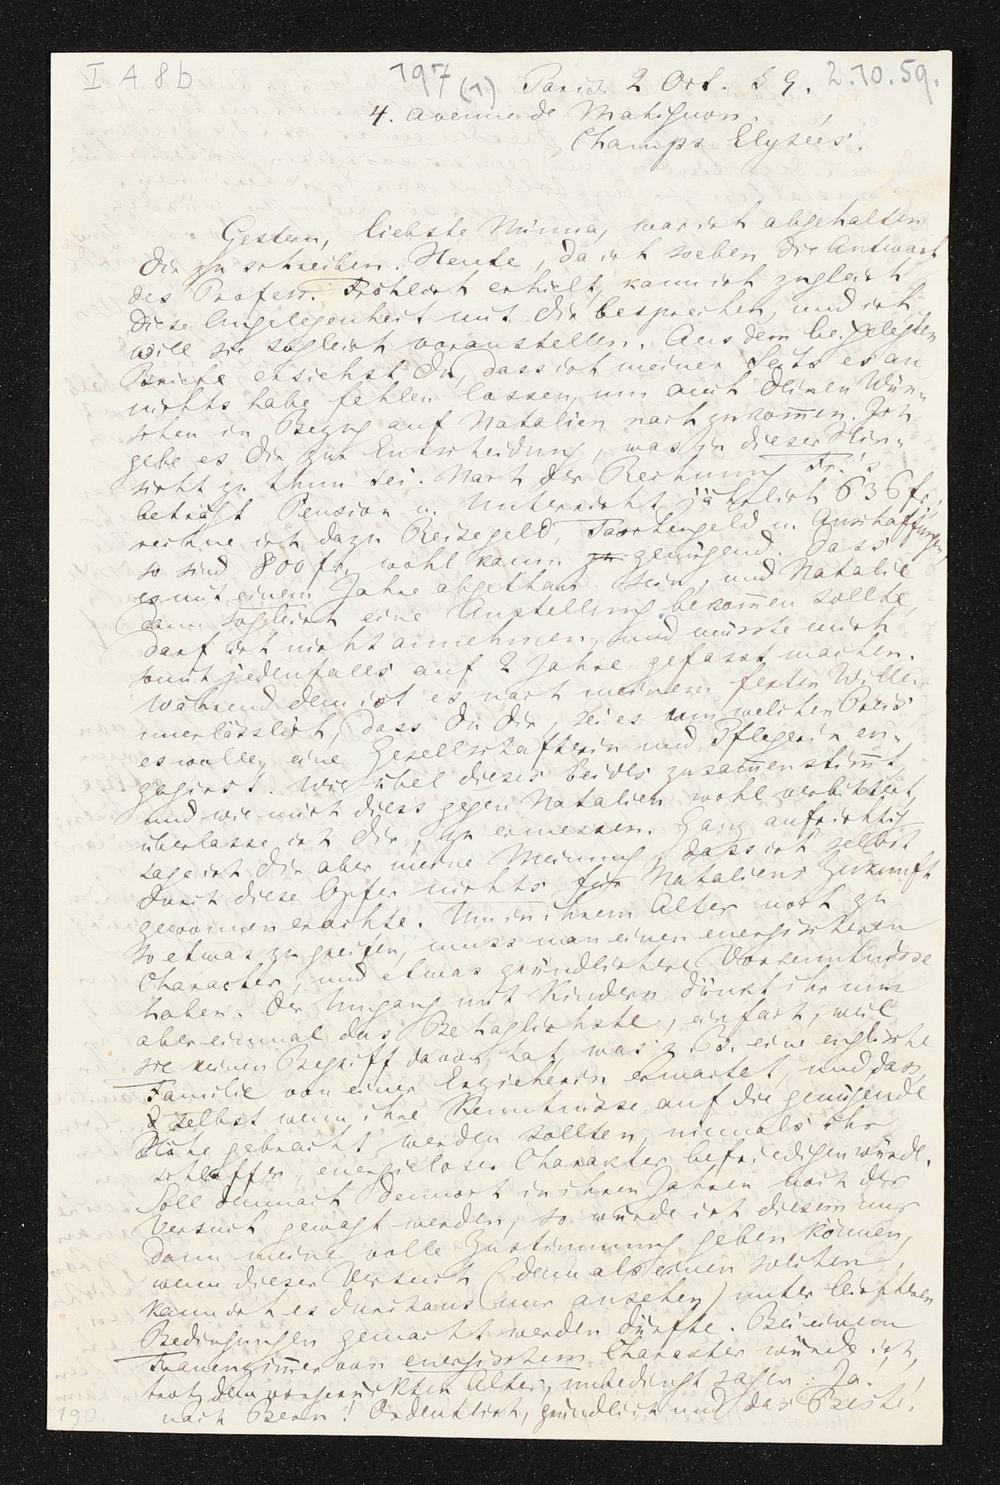 I A 8b
197 (1) Paris. 2 Oct. 59. 2.10.59.
4. Avenue de Matignon.
Champs Elysées.
Gestern, liebste Minna, war ich abgehalten
Dir zu schreiben. Heute, da ich soeben die Antwort
des Profess. Fröhlich erhielt, kann ich zugleich
diese Angelegenheit mit Dir besprechen, und ich
will sie sogleich voranstellen. Aus dem beigelegten
Briefe ersiehst Du, dass ich meiner Seits es an
nichts habe fehlen lassen, um auch Deinen Wün-
schen in Bezug auf Natalien nachzukom̄en. Ich
gebe es Dir zur Entscheidung, was in dieser Hin-
sicht zu thun sei. Nach der Rechnung Fr.'s
beträgt Pension u. Unterricht jährlich 636 fr.,
rechne ich dazu Reisegeld, Taschengeld u. Anschaffungen,
so sind 800 fr. wohl kaum genügend. Dass
es mit einem Jahre abgethan sein, und Natalie
dann sogleich eine Anstellung bekom̄en sollte,
darf ich nicht annehmen, und müsste mich
somit jedenfalls auf 2 Jahre gefasst machen.
Während dem ist es nach meinem festen Willen
unerlässlich, dass Du Dir, sei es um welchen Preis
es wolle, eine Gesellschafterin und Pflegerin en-
gagirst. Wie übel dieses Beides zusam̄enstim̄t,
und wie mich diess gegen Natalien wohl verbittert,
überlasse ich Dir, zu ermessen. Ganz aufrichtig
sage ich Dir aber meine Meinung, dass ich selbst
durch diese Opfer nichts für Nataliens Zukunft
gewonnen erachte. Um in ihrem Alter noch zu
so etwas zu greifen, muss man einen energischeren
Character, und etwas gründlichere Vorkenntnisse
haben. Der Umgang mit Kindern dünkt ihr nun
aber einmal das Behaglichste, einfach, weil
sie keinen Begriff davon hat, was z. B. eine englische
Familie von einer Erzieherin erwartet, und dass,
selbst wenn ihre Kenntnisse auf die genügende
Höhe gebracht werden sollten, niemals ihr
schlaffer, energieloser Charakter befriedigen würde.
Soll demnach dennoch in ihren Jahren noch der
Versuch gewagt werden, so würde ich diesem nur
dann meine volle Zustimmung geben können,
wenn dieser Versuch (denn als einen solchen
kann ich es durchaus nur ansehen) unter leichteren
Bedingungen gemacht werden dürfte. Bei einem
Frauenzim̄er von energischem Charakter würde ich,
trotz dem vorgerückten Alter, unbedingt sagen: Ja!
nach Bern! Ordentlich, gründlich und das Beste!
190